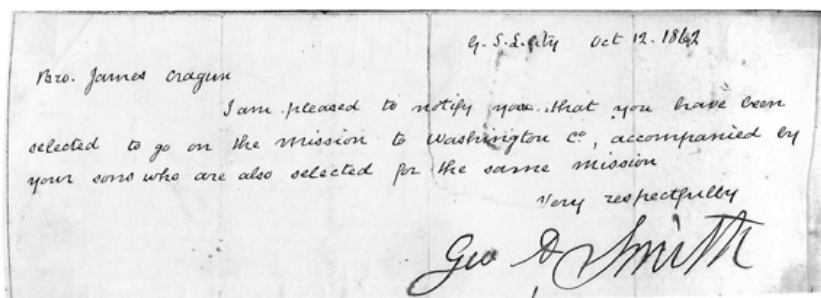 G. S. L. City Oct 12. 1862
Bro. James Cragun
I am pleased to notify you that you have been
selected to go on the mission to Washington Co, accompanied by
your sons who are also selected for the same mission
Very respectfully
Geo A Smith